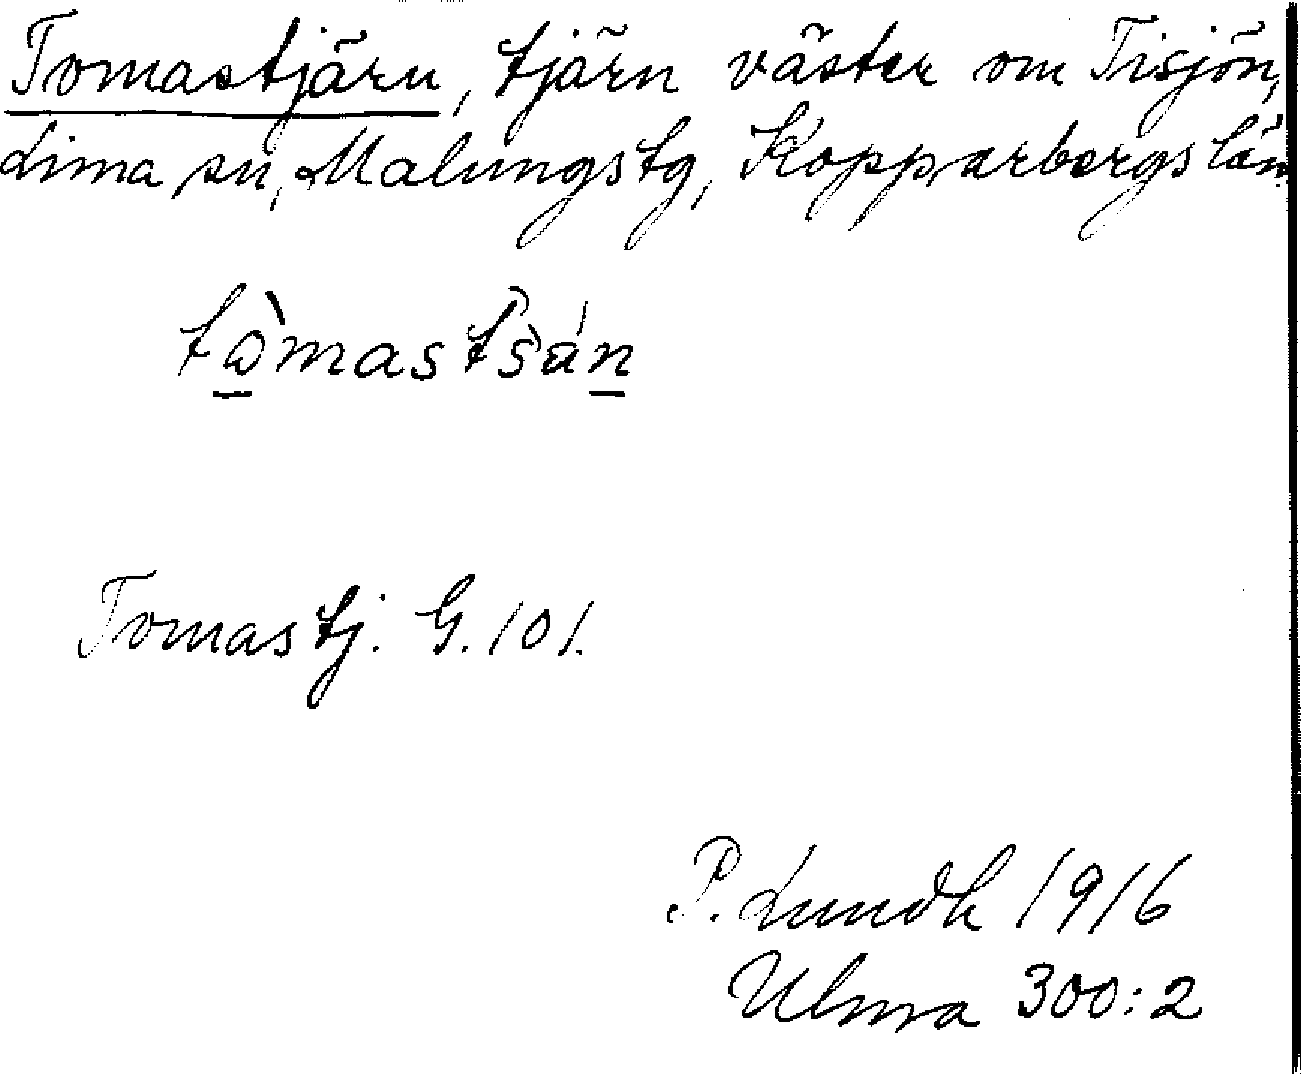 Tomastjärn, tjärn väster om Tisjön,
Lima sn, Malungs tg, Kopparbergs län
Tomastj. G. 101.
P. Lundh 1916
Ulma 300:2